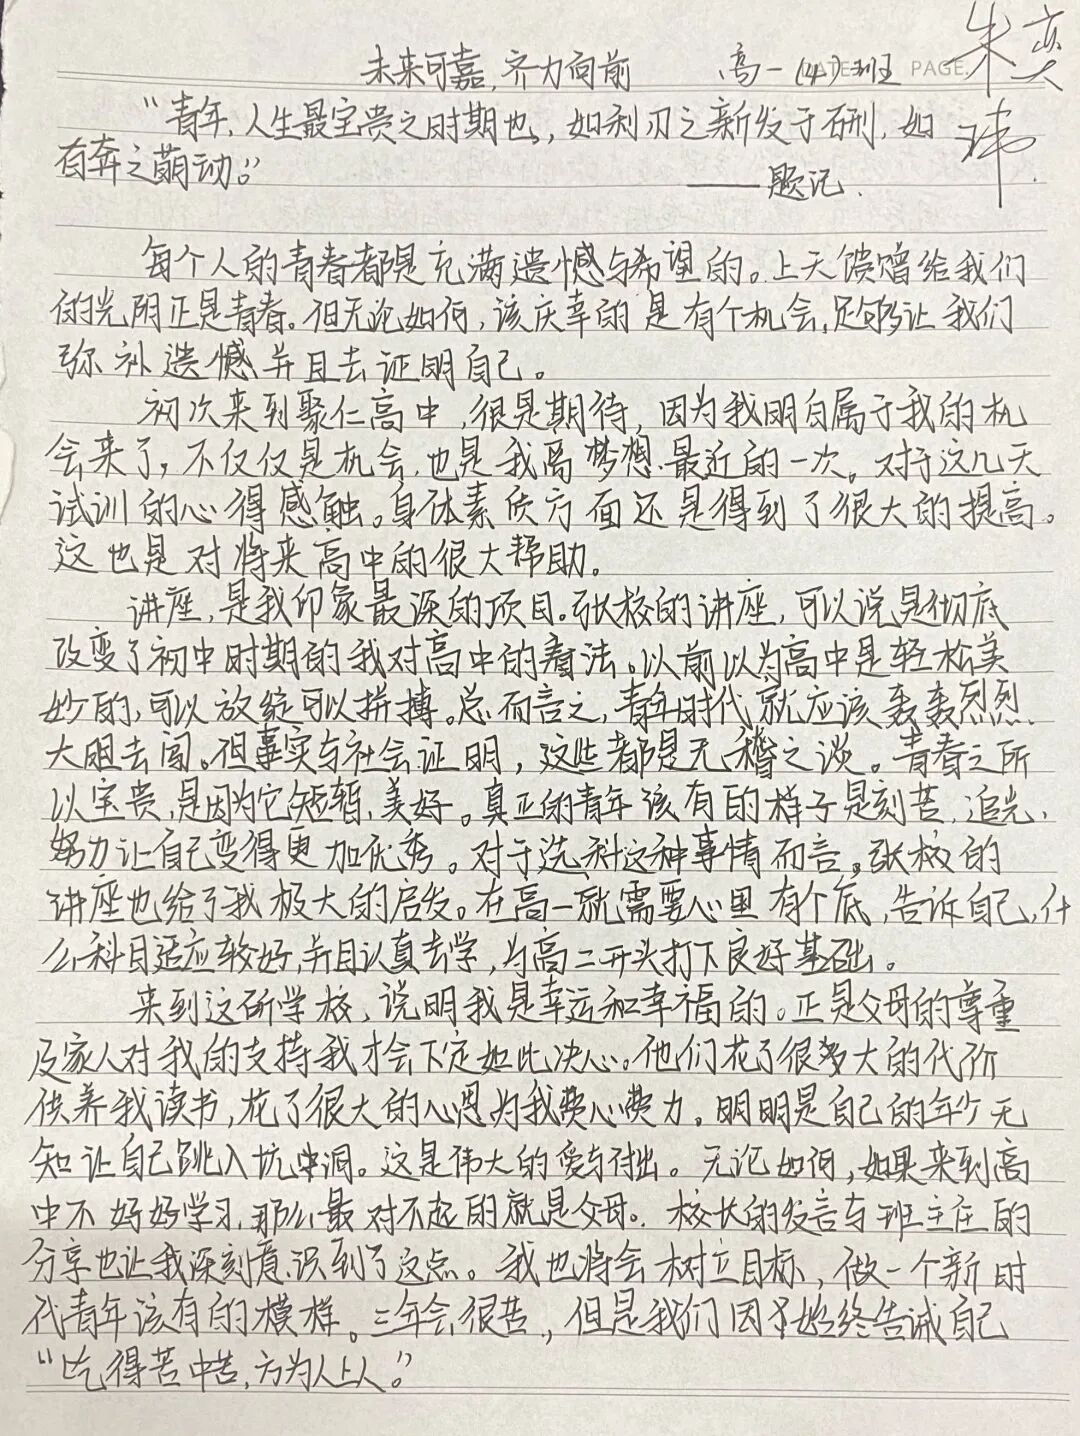 未来可嘉,齐力向前 高一(4)班 DATE PAGE. 朱奕玮
“青年,人生最宝贵之时期也,如利刃之新发于硎,如
有奔之萌动。”
——题记.
每个人的青春都是充满遗憾与希望的。上天馈赠给我们
的光阴正是青春。但无论如何,该庆幸的是有个机会,足够让我们
弥补遗憾并且去证明自己。
初次来到聚仁高中,很是期待,因为我明白属于我的机
会来了,不仅仅是机会,也是我离梦想最近的一次。对于这几天
试训的心得感触。身体素质方面还是得到了很大的提高。
这也是对将来高中的很大帮助。
讲座,是我印象最深的项目。张校的讲座,可以说是彻底
改变了初中时期的我对高中的看法。以前以为高中是轻松美
妙的,可以放纵可以拼搏。总而言之,青年时代就应该轰轰烈烈
大胆去闯。但事实与社会证明,这些都是无稽之谈。青春之所
以宝贵,是因为它短暂,美好。真正的青年该有的样子是刻苦,追光,
努力让自己变得更加优秀。对于选科这种事情而言。张校的
讲座也给了我极大的启发。在高一就需要心里有个底,告诉自己,什
么科目适应较好,并且认真去学,为高二开头打下良好基础。
来到这所学校,说明我是幸运和幸福的。正是父母的尊重
及家人对我的支持我才会下定如此决心。他们花了很多大的代价
供养我读书,花了很大的心思为我费心费力。明明是自己的年少无
知让自己跳入坑中洞。这是伟大的爱与付出。无论如何,如果来到高
中不好好学习,那么最对不起的就是父母。校长的发言与班主任的
分享也让我深刻意识到了这点。我也将会树立目标,做一个新时
代青年该有的模样。三年会很苦,但是我们因始终告诫自己
“吃得苦中苦,方为人上人。”